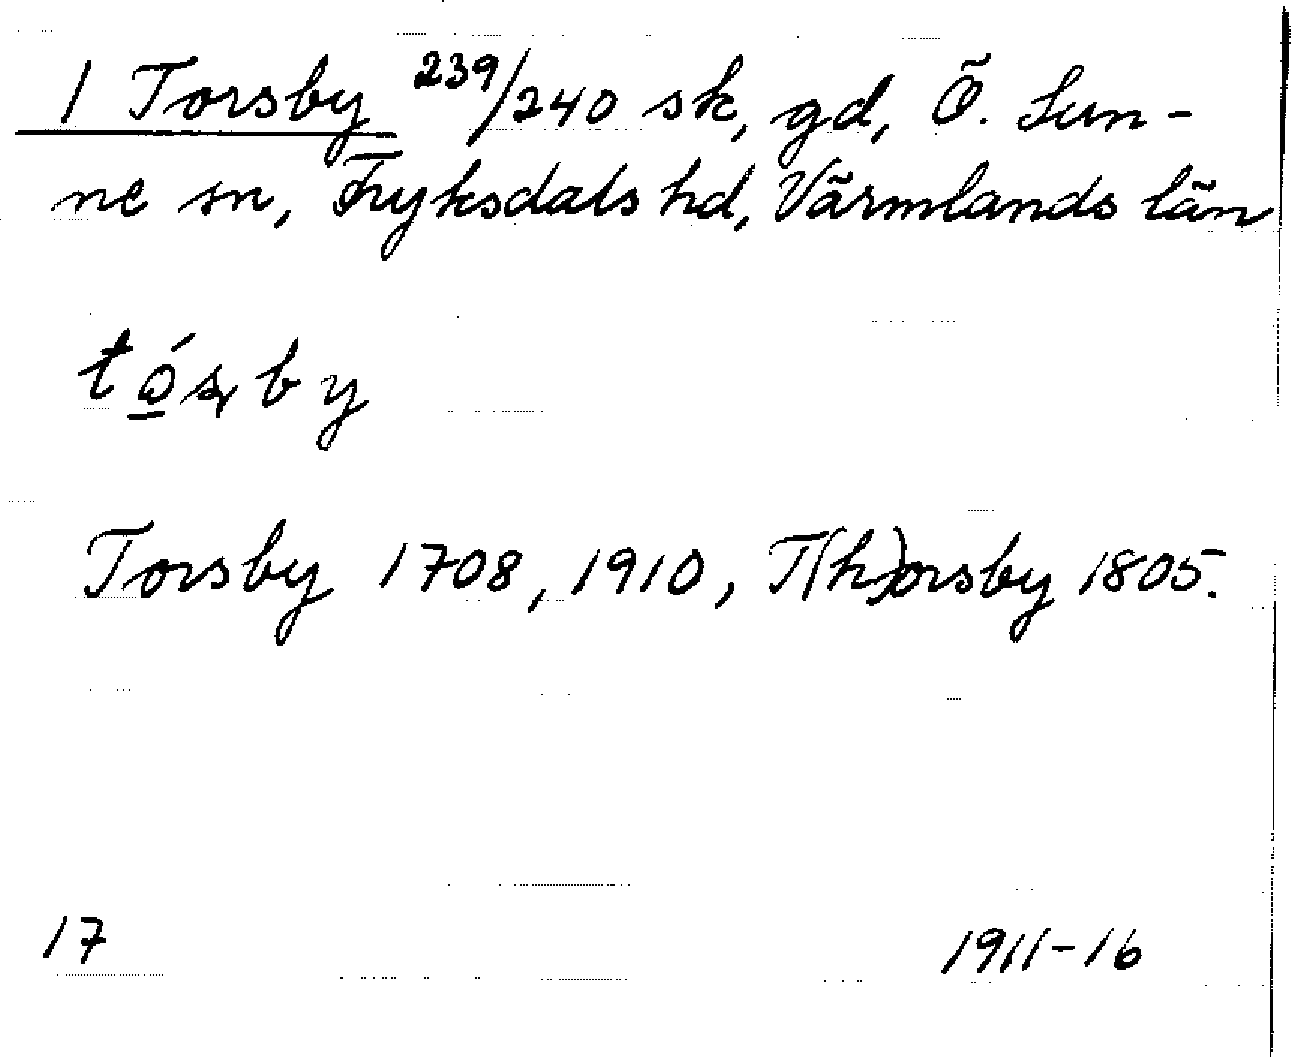 1 Torsby 239/240 sk, gd, Ö. Sun-
ne sn, Fryksdals hd, Värmlands län
Torsby 1708, 1910, T(h)orsby 1805.
17
1911-16